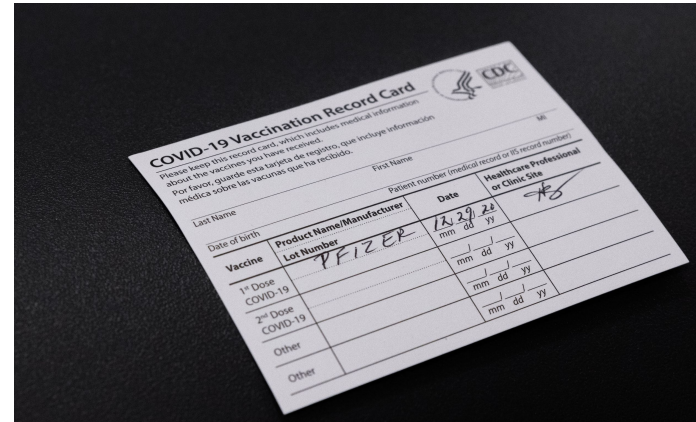 CDC
COVID-19 Vaccination Record Card
Please keep this record card, which includes medical information
about the vaccines you have received.
Por favor, guarde esta tarjeta de registro, que incluye información
médica sobre las vacunas que ha recibido.
Last Name First Name MI
Date of birth Patient number (medical record or IIS record number)
Vaccine Product Name/Manufacturer Date Healthcare Professional
Lot Number or Clinic Site
1st Dose PFIZER 12/29/20
COVID-19 mm dd yy
2nd Dose
COVID-19 mm dd yy
Other
mm dd yy
Other
mm dd yy